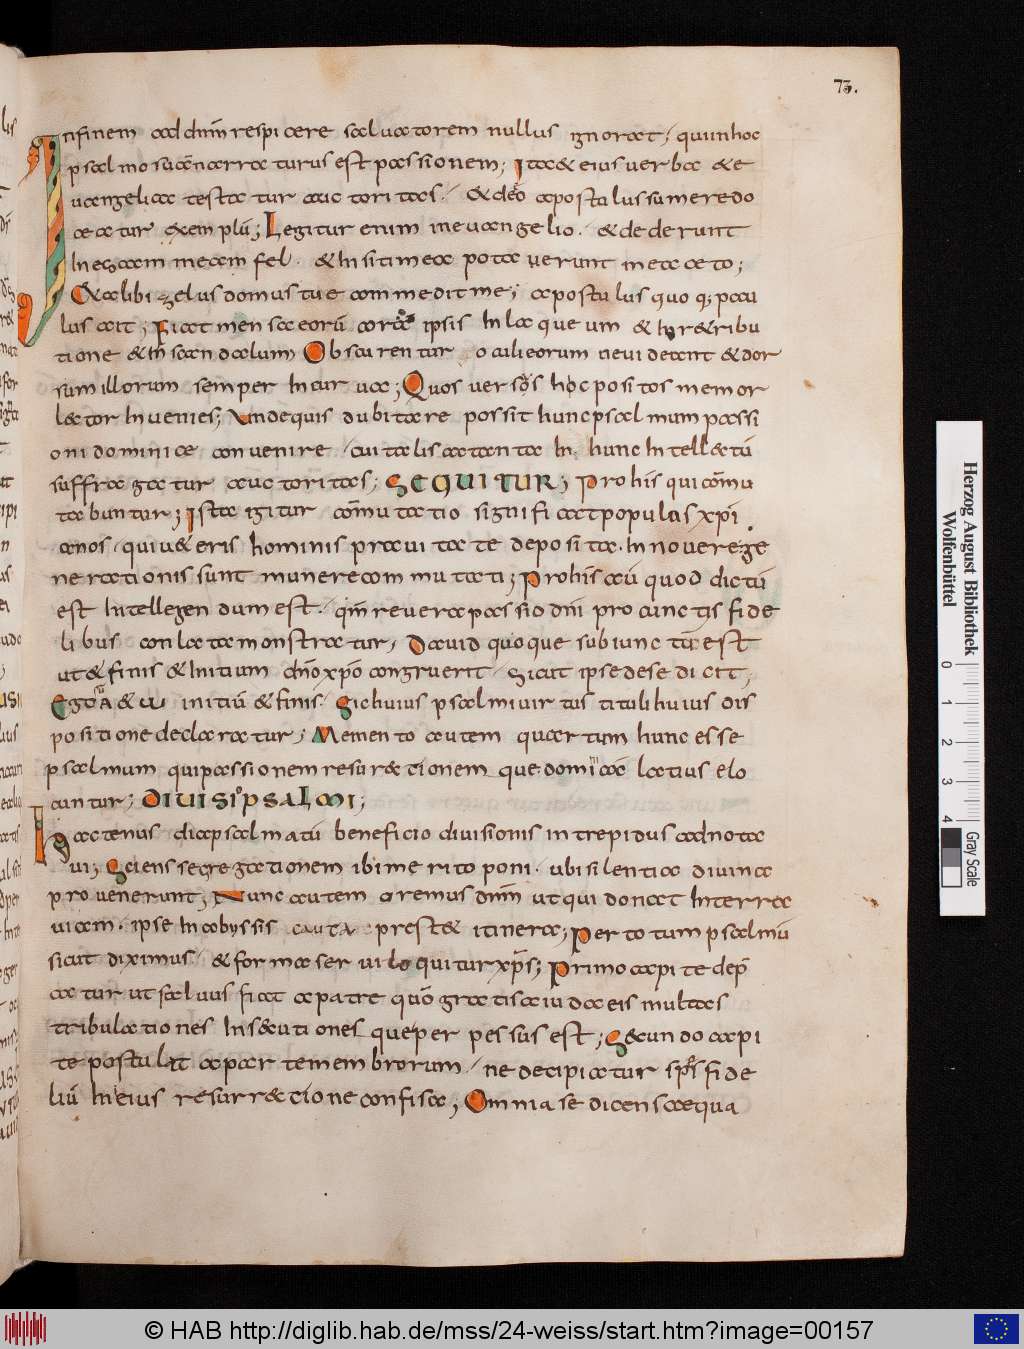 73.
Infinem ad dn̄m respicere saluatorem nullus ignorat; qui in hoc
psalmo suā narraturus est passionem; Ita & eius uerba & e
uangelica testatur auctoritas. & deō apostulus sumere do
ceatur exemplū; Legitur enim in euangelio. & dederunt
in escam meam fel. & in siti mea potauerunt me aceto;
& alibi zelus domus tuę commedit me; apostulus quoq; pau
lus ait; Fiat mensa eorū coram ipsis in laqueum & in r&ribu
tione & in scandalum; Obscurentur oculi eorum ne uideant & dor
sum illorum semper incurua; Quos uersos hoc positos memor
lector inuenies; Unde quis dubitare possit hunc psalmum passi
oni dominicae conuenire. cui talis ac tanta in hunc intellectū
suffragatur auctoritas; SEQUITUR; Pro his qui cōmu
tabuntur; Ista igitur cōmutatio significat populus xp̄i
anos. qui u&eris hominis prauitate deposita. in nouę rege
nerationis sunt munere commutati; Pro his aū quod dictū
est intellegendum est. qm̄ reuera passio dn̄i pro cunctis fide
libus conlata monstratur; Dauid quoque subiunctū est
ut & finis & initium dn̄o xp̄o congruerit. Sicut ipse de se dicit;
Ego sū A & ω initiū & finis. Sic huius psalmi uirtus tituli huius dis
positione declaratur; Memento autem quartum hunc esse
psalmum qui passionem resurectionem que dominicā latius elo
cuntur; DIUISI PSALMI;
Hactenus diapsalmatū beneficio diuisionis intrepidus adnota
ui; Sciens segregationem ibi merito poni. ubi silentia diuina
prouenerunt; Nunc autem oremus dn̄m ut qui donat in terra
uiam. ipse in abyssis cauta prestet itinera; Per totum psalmū
sicut diximus. & forma serui loquitur xp̄s; Primo capite dep̄
catur ut saluus fiat a patre quō gratis a iudaeis multas
tribulationes insecutiones que perpessus est; Secundo capi
te postulat a parte membrorum. ne decipiatur spēs fide
liū in eius resurrectione confisa; Omnia se dicens aequa
Herzog August Bibliothek
Wolfenbüttel
0 1 2 3 4
Gray Scale
© HAB http://diglib.hab.de/mss/24-weiss/start.htm?image=00157